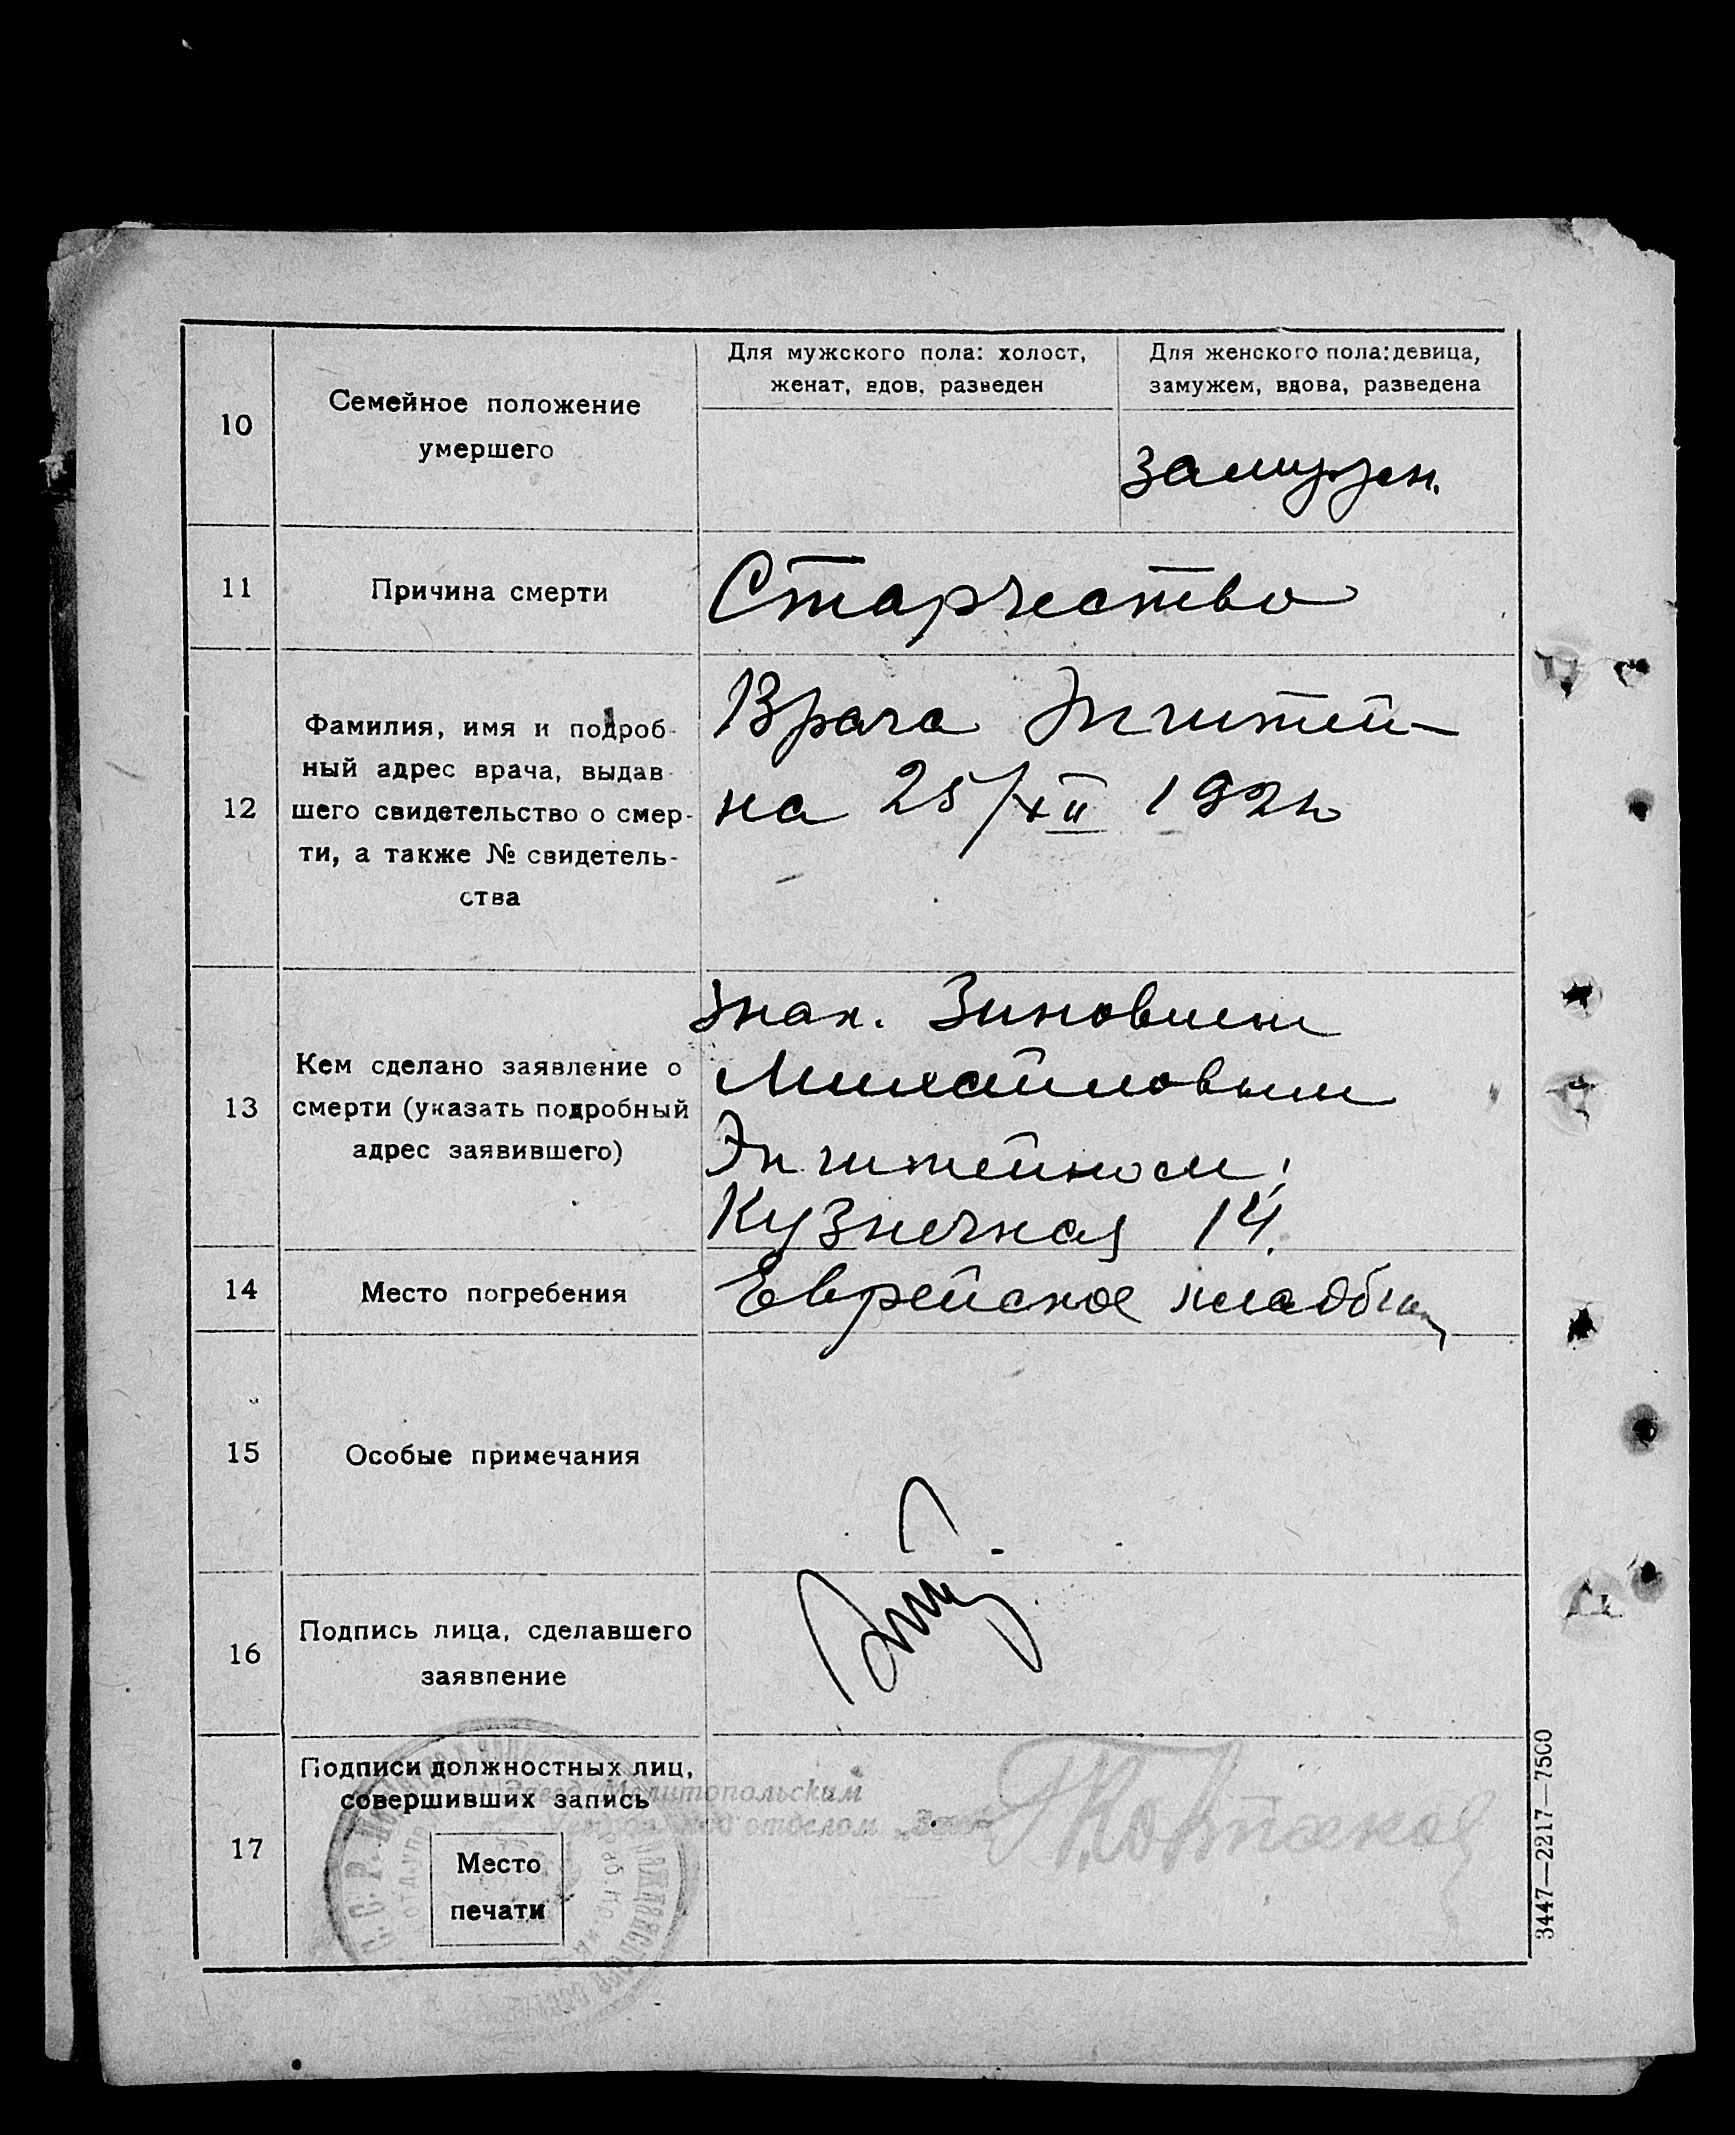 10
Семейное положение
умершего
Для мужского пола: холост,
женат, вдов, разведен
Для женского пола: девица,
замужем, вдова, разведена
замужем.
11
Причина смерти
Старчество
12
Фамилия, имя и подроб-
ный адрес врача, выдав-
шего свидетельство о смер-
ти, а также № свидетель-
ства
Врача Эпштей-
на 25/XII 192
13
Кем сделано заявление о
смерти (указать подробный
адрес заявившего)
Зиновием
Михайловым
Эпштейном;
Кузнечная 14.
14
Место погребения
Еврейское кладбищ
15
Особые примечания
16
Подпись лица, сделавшего
заявление
17
Подписи должностных лиц,
совершивших запись
Место
печати
Завед. Мелитопольским
отделом „
3447—2217—7500